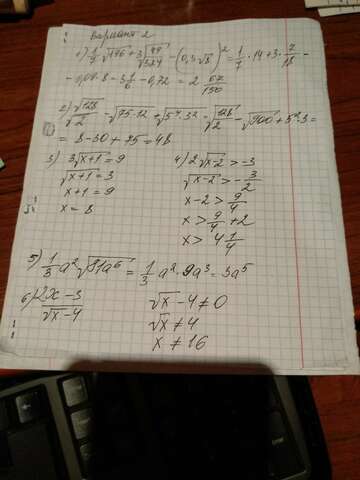 Вариант 2
1) 1/7 √196 + 3√49/324 - (0,3√8)² = 1/7 · 14 + 3 · 7/18 -
- 0,09 · 8 = 3 1/6 - 0,72 = 2 67/150
2) √128/√2 - √75·12 + √5⁴·3² = √128/√2 - √900 + 5²·3 =
= 8 - 30 + 75 = 48
3) 3√x+1 = 9
√x+1 = 3
x+1 = 9
x = 8
4) 2√x-2 > -3
√x-2 > -3/2
x-2 > 9/4
x > 9/4 + 2
x > 4 1/4
5) 1/3 a² √81a⁶ = 1/3 a² · 9a³ = 3a⁵
6) 2x-3/√x-4
√x - 4 ≠ 0
√x ≠ 4
x ≠ 16